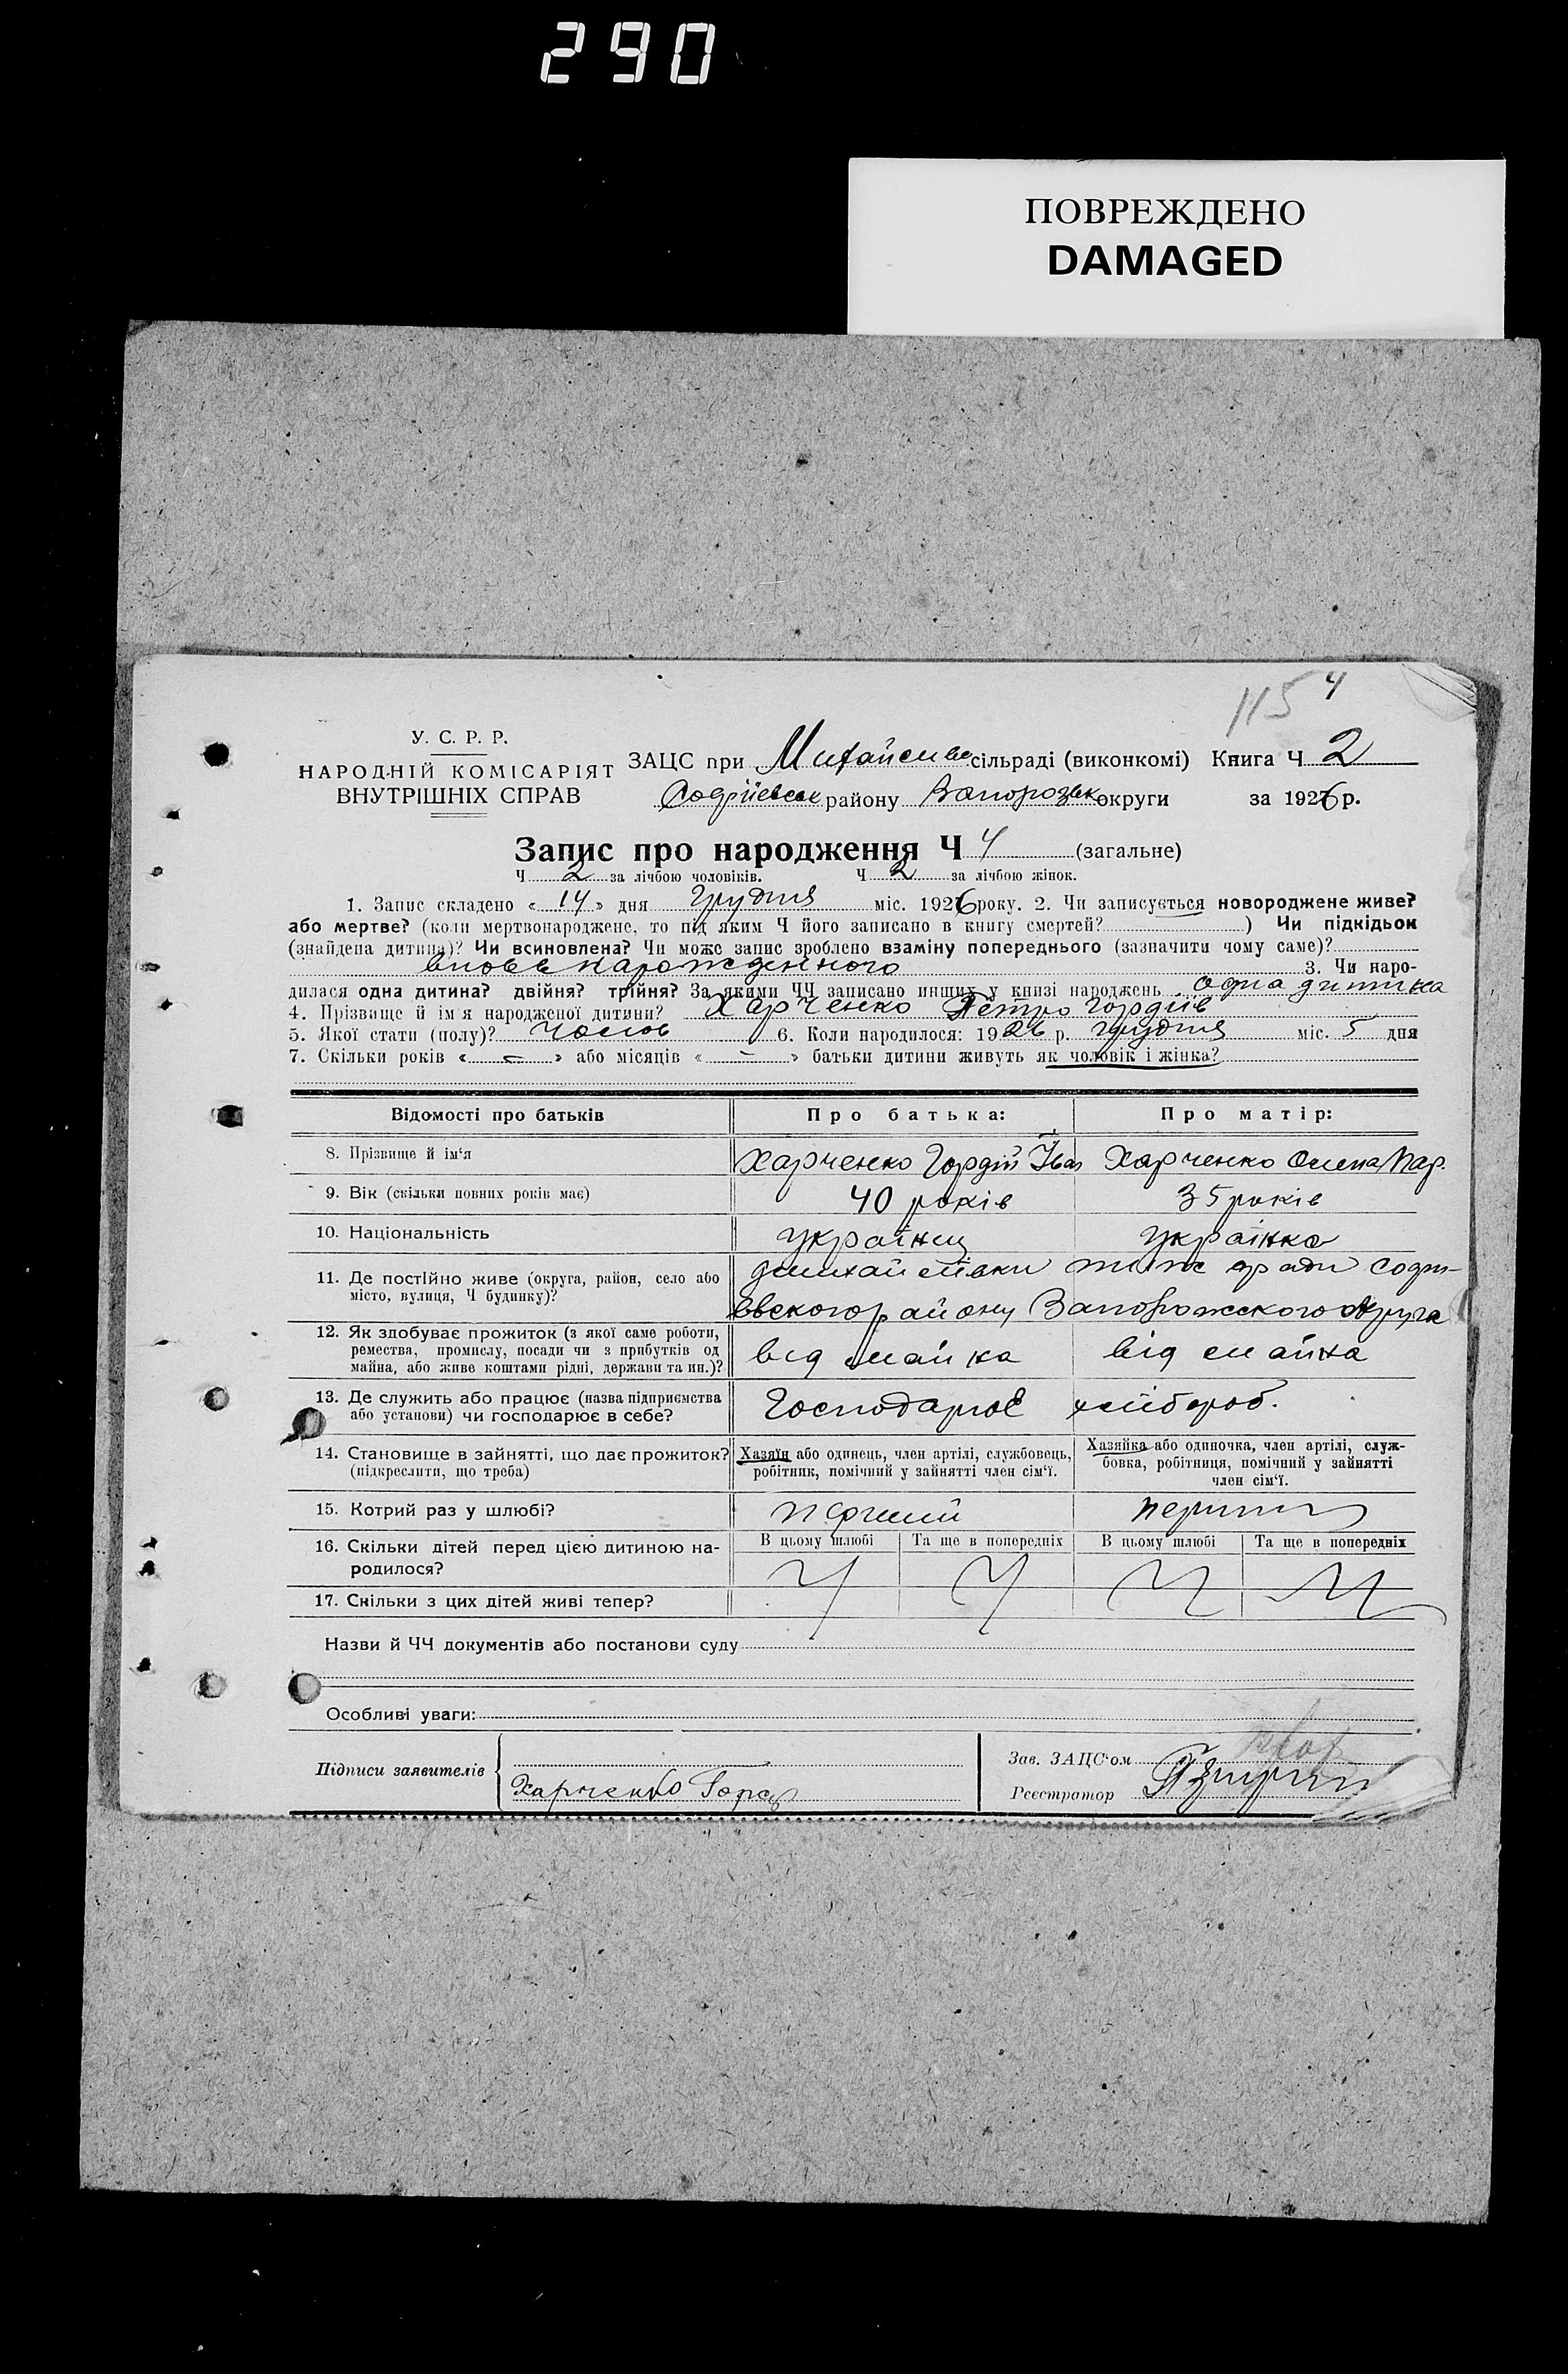 290
ПОВРЕЖДЕНО
DAMAGED
115 4
У. С. Р. Р.
НАРОДНІЙ КОМІСАРІЯТ
ВНУТРІШНІХ СПРАВ
ЗАЦС при сільраді (виконкомі) Книга Ч 2
району округи за 1926 р.
Запис про народження Ч 4 (загальне)
Ч 2 за лічбою чоловіків. Ч 2 за лічбою жінок.
1. Запис складено « 14 » дня грудня міс. 1926 року. 2. Чи записується новороджене живе?
або мертве? (коли мертвонароджене, то під яким Ч його записано в книгу смертей? ) Чи підкідьок
(знайдена дитина)? Чи всиновлена? Чи може запис зроблено взаміну попереднього (зазначити чому саме)?
вновь народженного 3. Чи наро-
дилася одна дитина? двійня? трійня? За якими ЧЧ записано инших у книзі народжень одна дитина
4. Прізвище й ім'я народженої дитини? Харченко Петро Гордіїв
5. Якої стати (полу)? чолов 6. Коли народилося: 1926 р. грудня міс. 5 дня
7. Скільки років « — » або місяців « — » батьки дитини живуть як чоловік і жінка?
Відомості про батьків Про батька: Про матір:
8. Прізвище й ім'я Харченко Гордій Іван Харченко Олена Пар.
9. Вік (скільки повних років має) 40 років 35 років
10. Національність українец українка
11. Де постійно живе (округа, район, село або
місто, вулиця, Ч будинку)?
району Запорожского округа
12. Як здобуває прожиток (з якої саме роботи,
ремества, промислу, посади чи з прибутків од
майна, або живе коштами рідні, держави та ин.)? від майна від майна
13. Де служить або працює (назва підприємства
або установи) чи господарює в себе? Господарює хлібороб.
14. Становище в зайнятті, що дає прожиток?
(підкреслити, що треба)
Хазяїн або одинець, член артілі, службовець,
робітник, помічний у зайнятті член сім'ї.
Хазяйка або одиночка, член артілі, служ-
бовка, робітниця, помічний у зайнятті
член сім'ї.
15. Котрий раз у шлюбі? перший
16. Скільки дітей перед цією дитиною на-
родилося?
В цьому шлюбі Та ще в попередніх В цьому шлюбі Та ще в попередніх
17. Скільки з цих дітей живі тепер?
Назви й ЧЧ документів або постанови суду
Особливі уваги:
Підписи заявителів Харченко
Зав. ЗАЦС'ом
Реєстратор